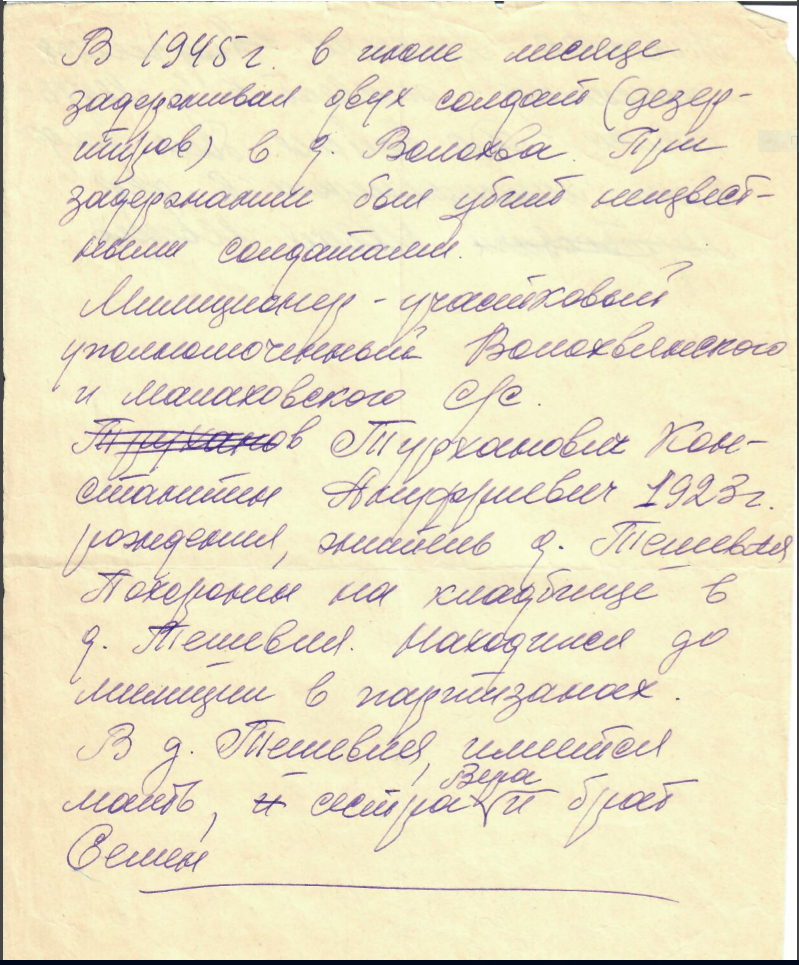 В 1945 г. в июле месяце
задерживал двух солдат (дезер-
тиров) в д. Волохва. При
задержании был убит неизвест-
ными солдатами.
Милиционер - участковый
уполномоченный Волохвянского
и Малаховского с/с.
Труханов Турханович Кон-
стантин Ануфриевич 1923 г.
рождения, житель д. Тешевля
Похоронен на кладбище в
д. Тешевля. Находился до
милиции в партизанах.
В д. Тешевля, имеется
мать, и сестра Вера и брат
Семен